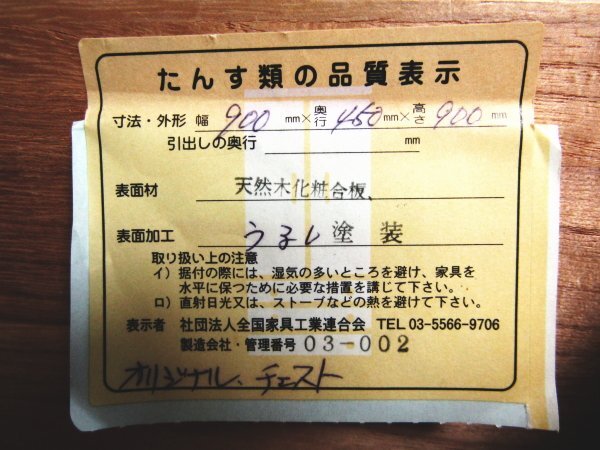 たんす類の品質表示
寸法・外形 幅 900 mm×奥行 450 mm×高さ 900 mm
引出しの奥行 mm
表面材 天然木化粧合板、
表面加工 うるし塗装
取り扱い上の注意
イ）据付の際には、湿気の多いところを避け、家具を
水平に保つために必要な措置を講じて下さい。
ロ）直射日光又は、ストーブなどの熱を避けて下さい。
表示者 社団法人全国家具工業連合会 TEL 03-5566-9706
製造会社・管理番号 03-002
オリジナル、チェスト